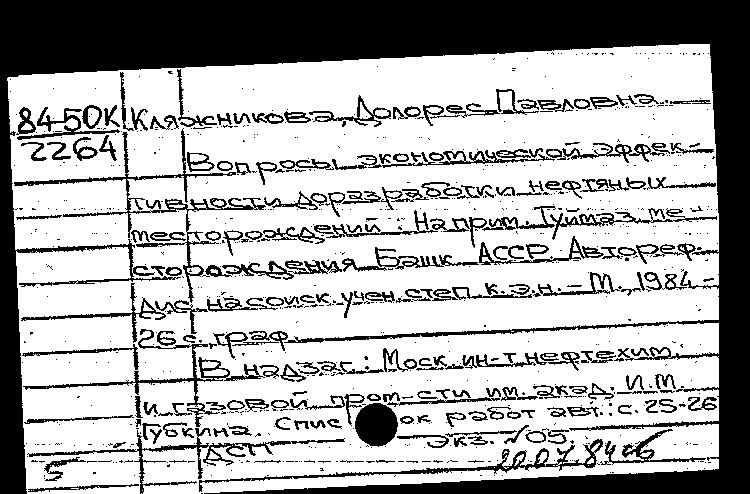 84-50К Кляжникова, Долорес Павловна.
2264
Вопросы экономической эффек-
тивности доразработки нефтяных
месторождений: На прим. Туймаз. ме-
сторождения Башк. АССР. Автореф.
дис. на соиск. учен. степ. к.э.н. – М., 1984 –
26 с. граф.
В надзаг.: Моск. ин-т нефтехим.
и газовой пром-сти им. акад. И.М.
Губкина. Список работ авт.: с. 25-26
ДСП экз. №05.
5 20.07.84